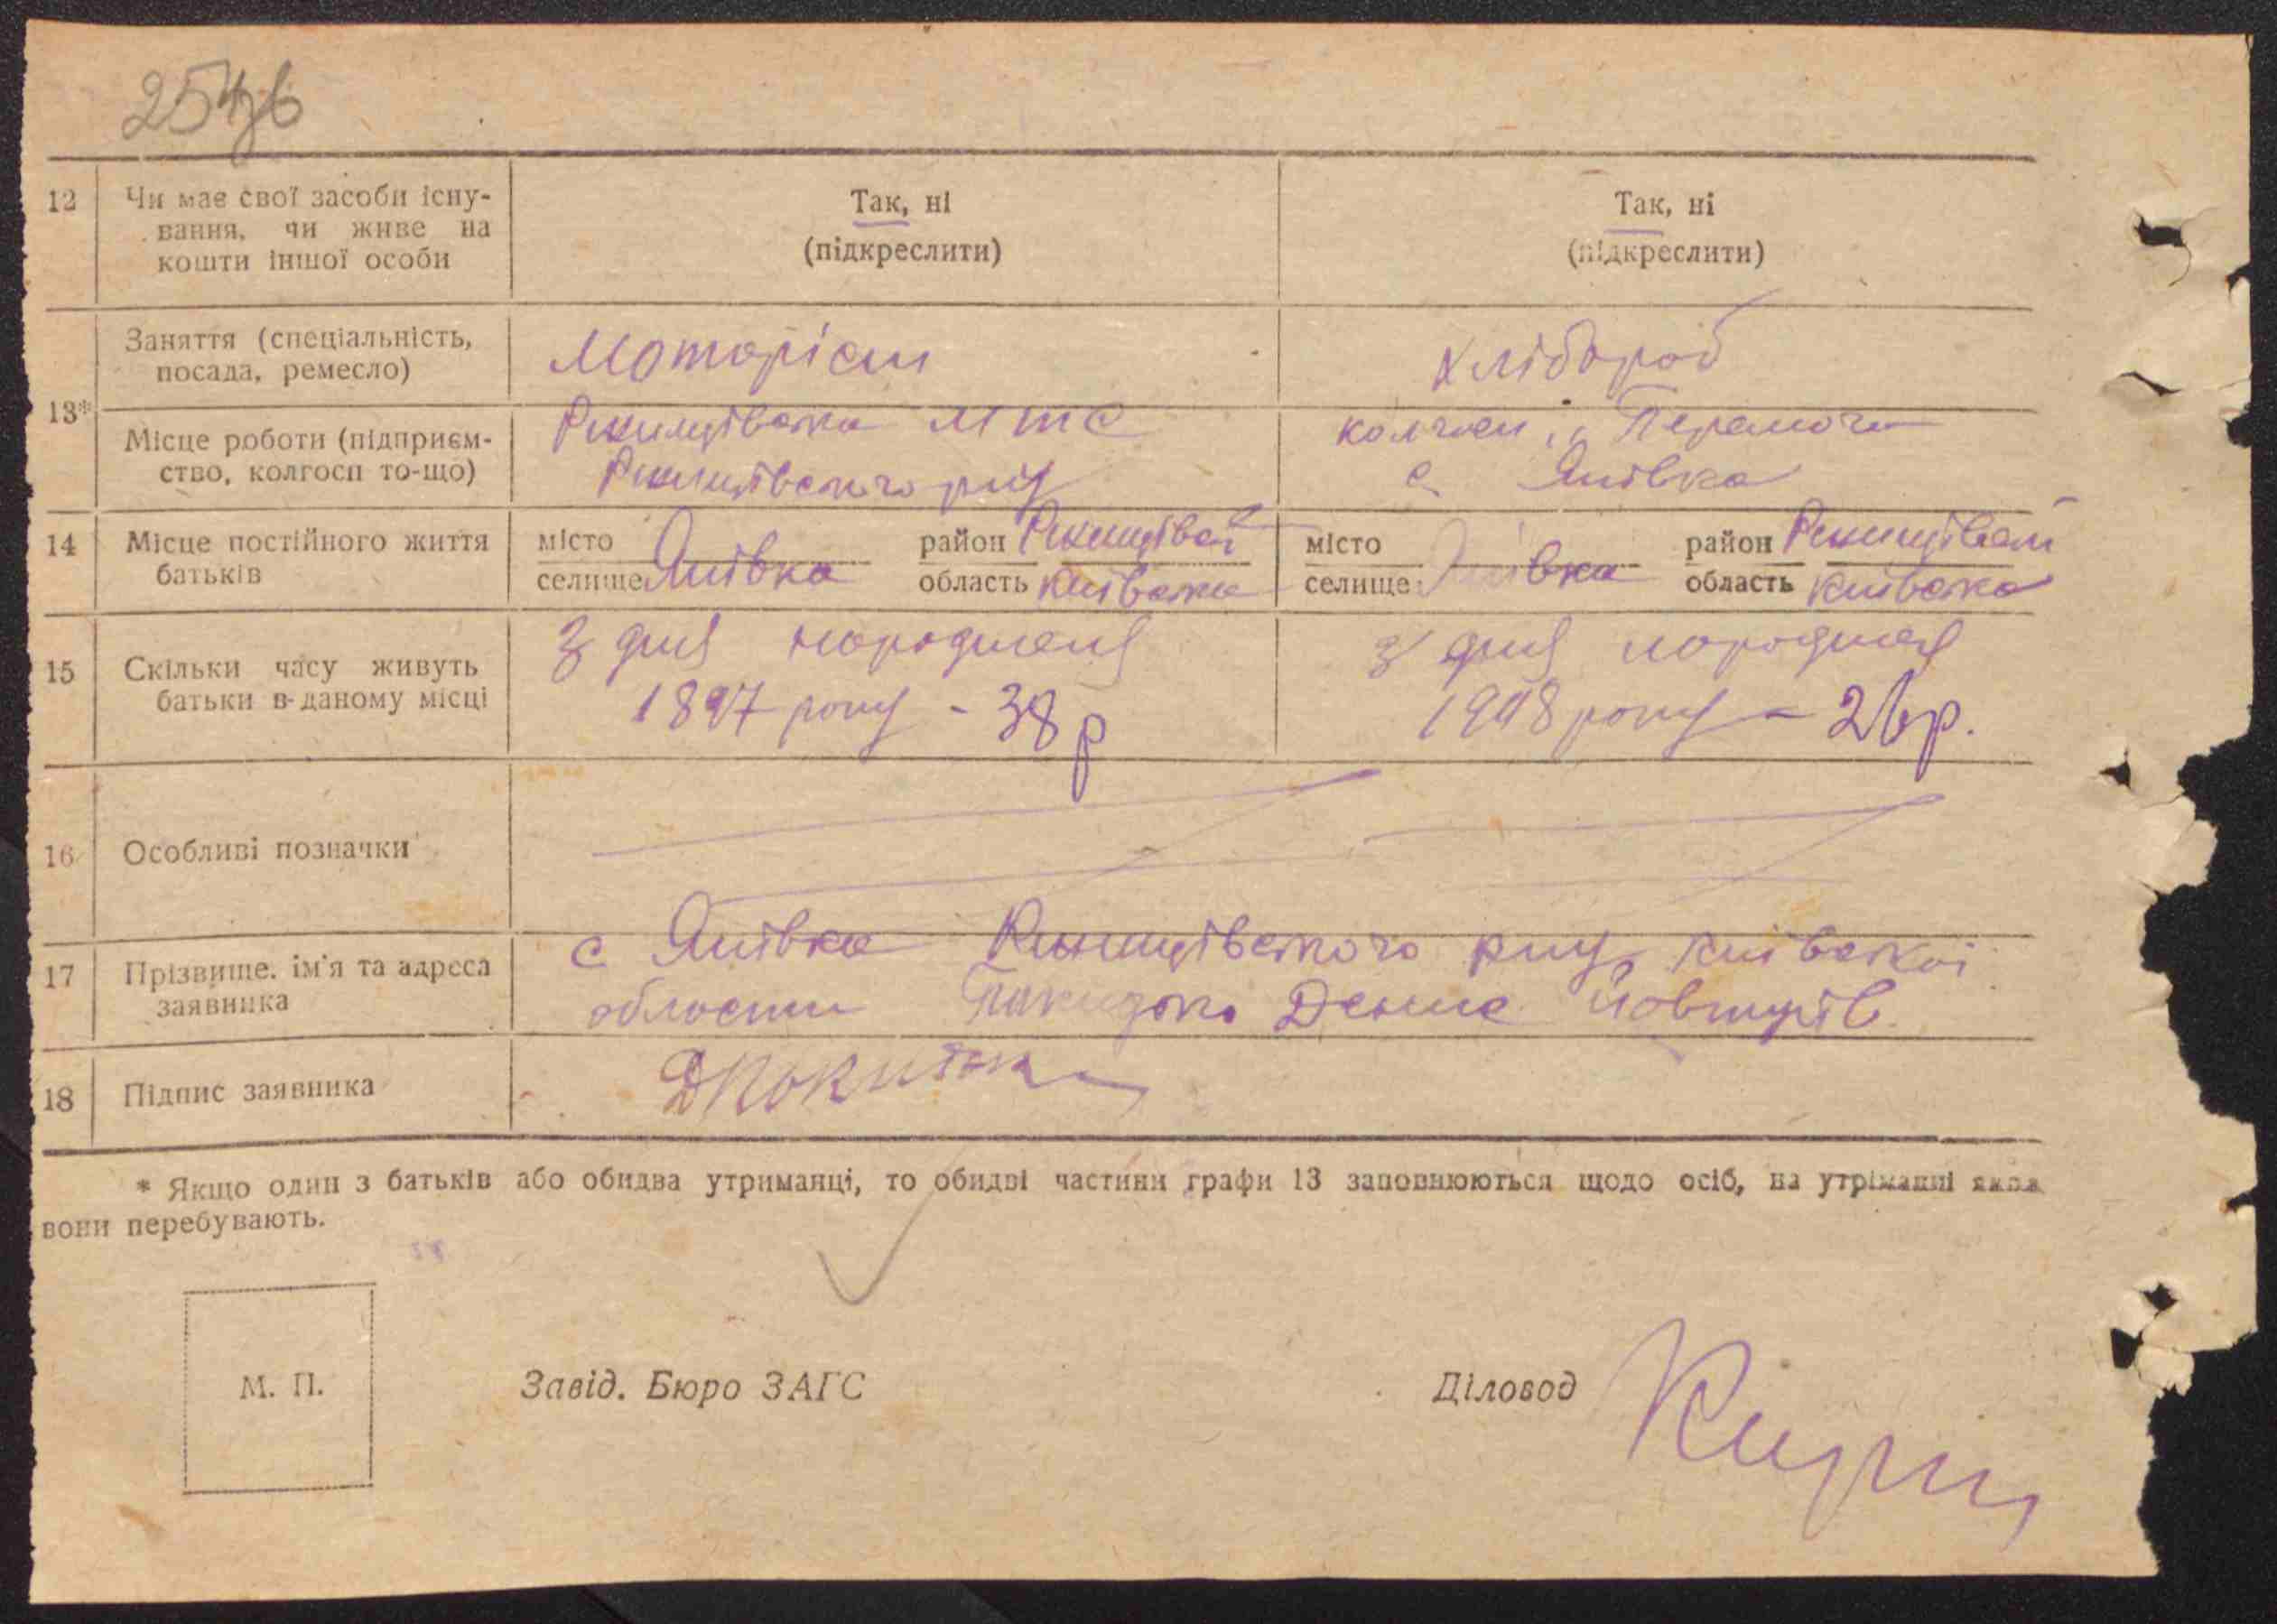 12 Чи має свої засоби існу-
вання, чи живе на
кошти іншої особи
Так, ні
(підкреслити)
Так, ні
(підкреслити)
13*
Заняття (спеціальність,
посада, ремесло)
Моторіст
Хлібороб
Місце роботи (підприєм-
ство, колгосп то-що)
МТС
колгосп „Перемога
с. Янівка
14 Місце постійного життя
батьків
місто
селище Янівка
район
область Київська
місто
селище Янівка
район
область Київська
15 Скільки часу живуть
батьки в-даному місці
З дня народженя
1897 року - 38 р
З дня народженя
1908 року - 26 р.
16 Особливі позначки
17 Прізвище, ім'я та адреса
заявника
с Янівка Київської
області Денис
18 Підпис заявника
* Якщо один з батьків або обидва утриманці, то обидві частини графи 13 заповнюються щодо осіб, на утріманні яких
вони перебувають.
М. П.
Завід. Бюро ЗАГС
Діловод